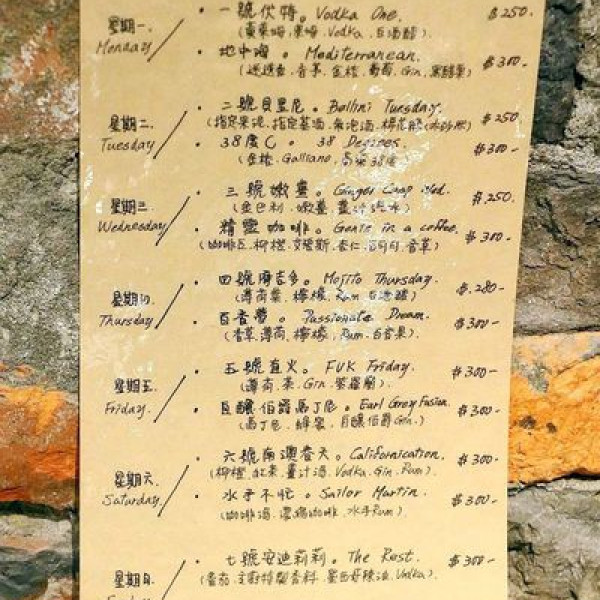 星期一. 一號伏特。Vodka One. $250.
Monday
果姆, Vodka, 白酒醋)
地中海。Mediterranean. $300-
(迷迭香, 香茅, 金桔, 葡萄, Gin, 黑醋栗)
星期二. 二號貝里尼。Bellini Tuesday. $250
Tuesday
(指定果泥, 指定基酒, 氣泡酒,
38度C。38 Degrees. $300-
(金桔, Galliano, 高粱38度
星期三 三號嫩薑。Ginger Camp Wed. $250.
Wednesday
(金巴利, 嫩薑, 薑汁汽水)
精靈咖啡。Genie in a coffee. $300-
(咖啡豆, 柳橙, 杏仁, 香草)
星期四 四號摩吉多。Mojito Thursday. $280-
Thursday
(薄荷葉, 檸檬, Rum, 白酒醋)
百香夢。Passionate Dream. $300-
(香草, 薄荷, 檸檬, Rum, 百香果)
星期五 五號直火。FUK Friday. $300-
Friday.
(薄荷, 茶, Gin, 紫羅蘭)
伯爵馬丁尼。Earl Grey Fusion. $300-
(馬丁尼, 蜂蜜, 自釀伯爵Gin.)
星期六 六號南澳春天。Californication. $300-
Saturday.
(柳橙, 紅茶, 薑汁酒, Vodka, Gin, Rum)
水手不忙。Sailor Martin. $300-
(咖啡酒, 濃縮咖啡, 水手Rum)
星期日. 七號安迪莉莉。The Rest. $300-
(番茄, 主廚特製香料, Vodka).